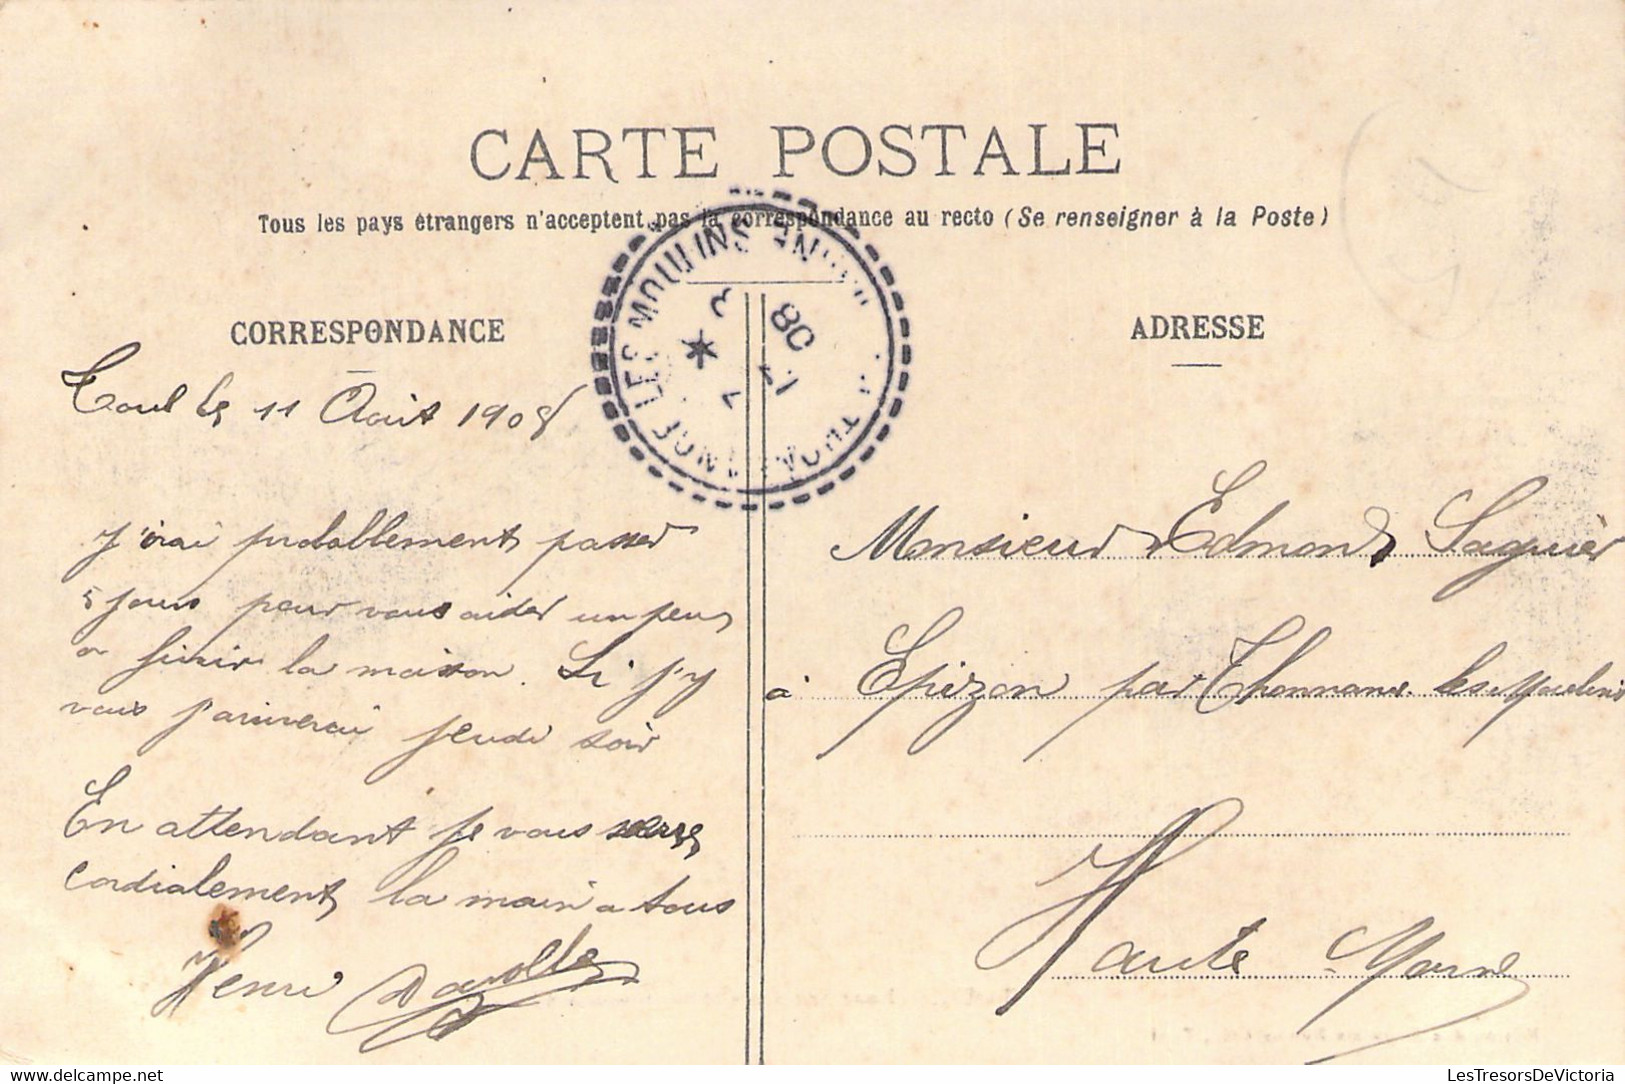 CARTE POSTALE
Tous les pays étrangers n'acceptent pas la correspondance au recto (Se renseigner à la Poste)
CORRESPONDANCE
Toul le 11 Août 1908
J'irai probablement passer
5 jours pour vous aider un peu
a finir la maison. Si j'y
vais j'arriverai jeudi soir
En attendant je vous serre
cordialement la main a tous
Henri
ADRESSE
Monsieur Edmond Saguier
à Epizon par Thonnance les Moulins
Haute-Marne
LES MOULINS
08
LesTresorsDeVictoria - delcampe.net
LesTresorsDeVictoria